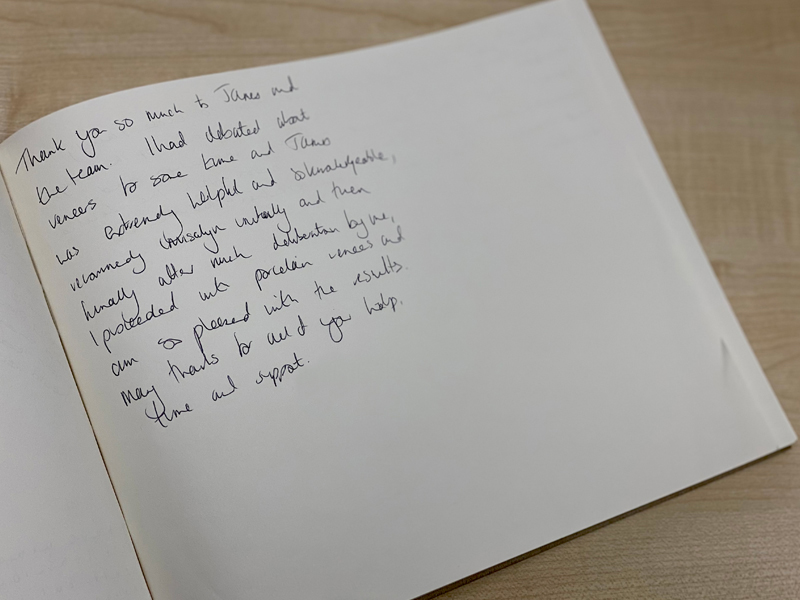 Thank you so much to James and
the team. I had debated about
veneers for some time and James
was extremely helpful and so knowledgeable,
recommending Invisalign initially and then
finally after much deliberation by me,
I proceeded with porcelain veneers and
am so pleased with the results.
Many thanks for all of your help,
time and support.